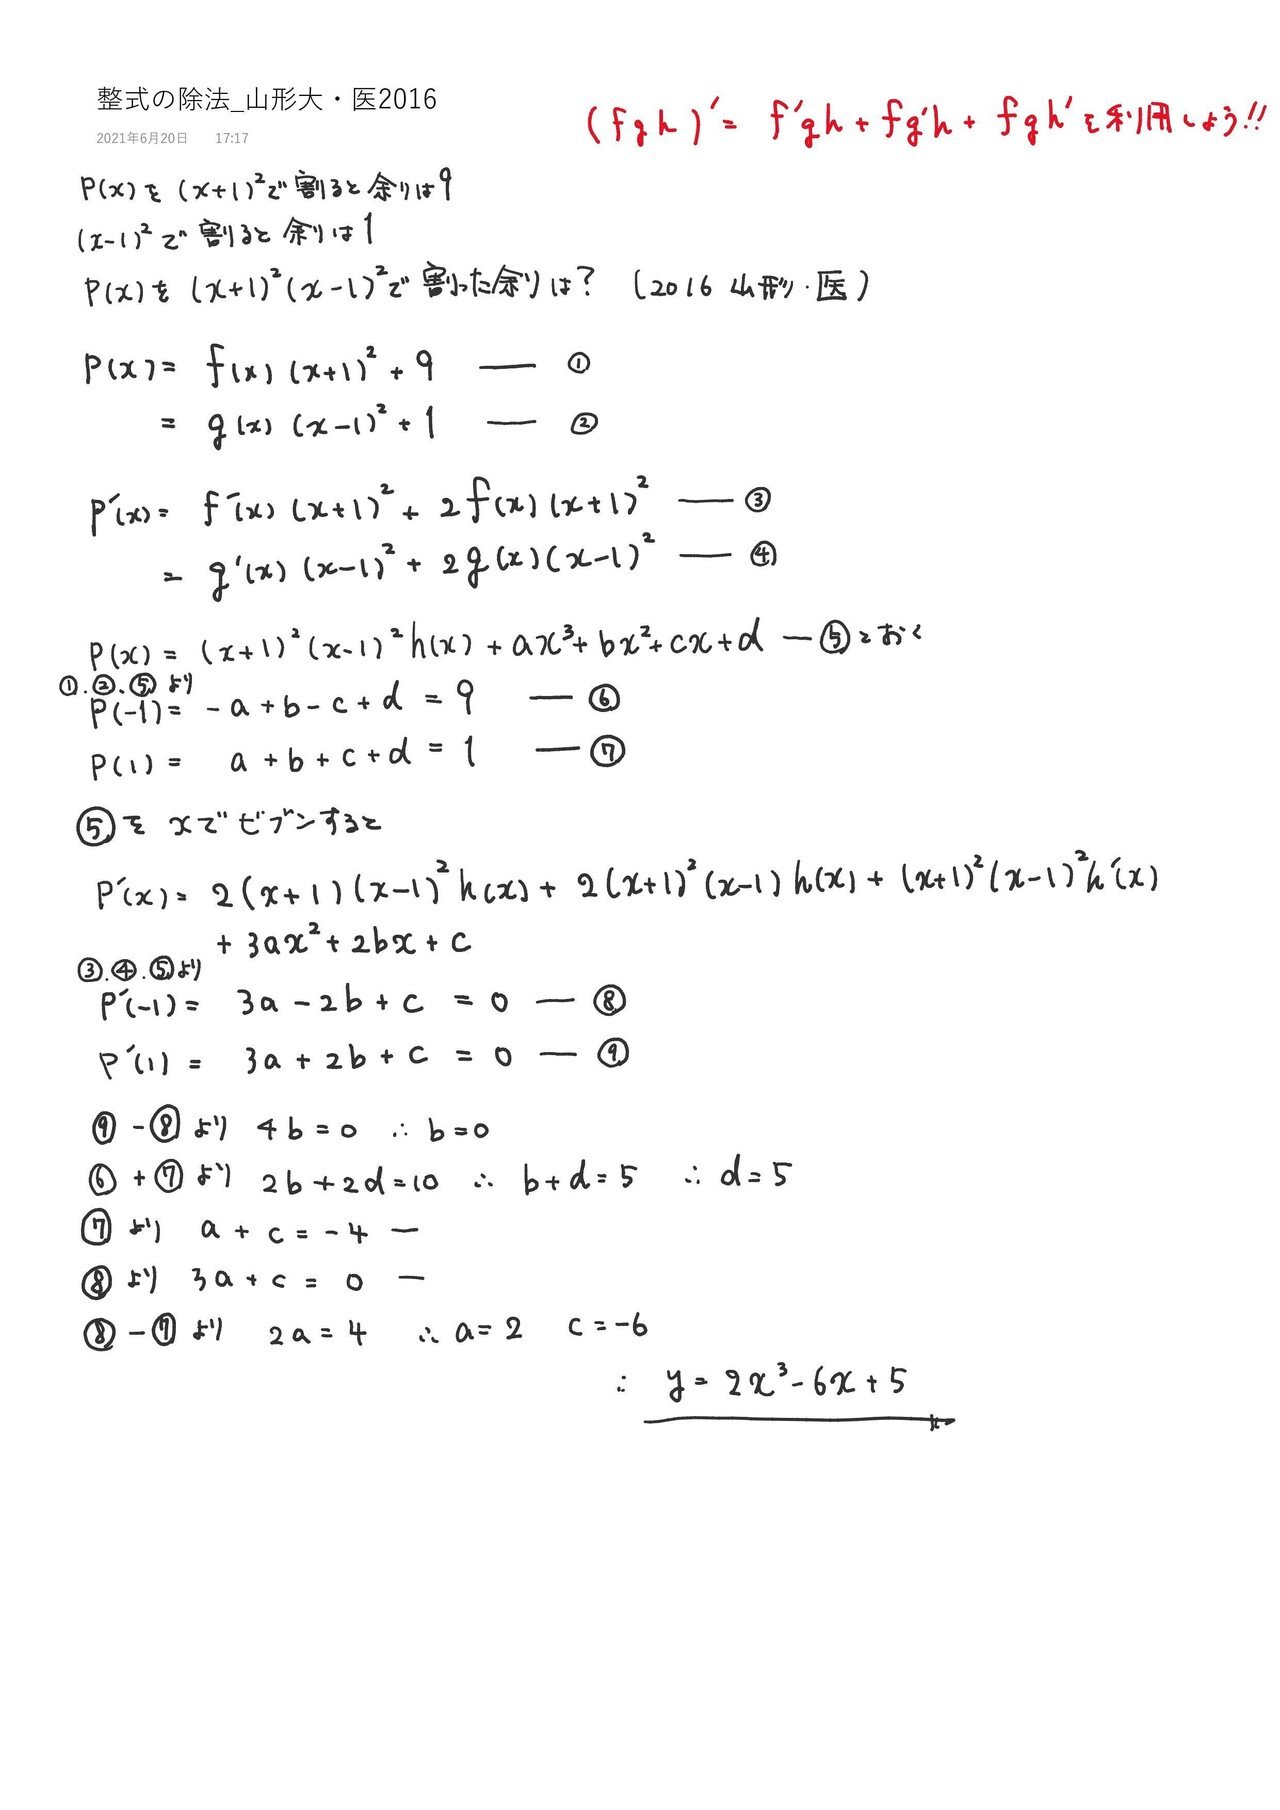 整式の除法_山形大・医2016
2021年6月20日 17:17
(fgh)´= f´gh + fg´h + fgh´を利用しよう!!
P(x)を(x+1)²で割ると余りは9
(x-1)²で割ると余りは1
P(x)を(x+1)²(x-1)²で割った余りは? (2016 山形・医)
P(x)= f(x)(x+1)²+9 ― ①
= g(x)(x-1)²+1 ― ②
P´(x)= f´(x)(x+1)²+2f(x)(x+1)² ― ③
= g´(x)(x-1)²+2g(x)(x-1)² ― ④
P(x)=(x+1)²(x-1)²h(x)+ax³+bx²+cx+d ―⑤とおく
①.②.⑤より
P(-1)= -a+b-c+d = 9 ― ⑥
P(1)= a+b+c+d = 1 ― ⑦
⑤をxでビブンすると
P´(x)= 2(x+1)(x-1)²h(x)+2(x+1)²(x-1)h(x)+(x+1)²(x-1)²h´(x)
+3ax²+2bx+c
③.④.⑤より
P´(-1)= 3a-2b+c = 0 ― ⑧
P´(1)= 3a+2b+c = 0 ― ⑨
⑨-⑧より 4b=0 ∴b=0
⑥+⑦より 2b+2d=10 ∴ b+d=5 ∴d=5
⑦より a+c=-4 ―
⑧より 3a+c=0 ―
⑧-⑦より 2a=4 ∴a=2 c=-6
∴ y=2x³-6x+5